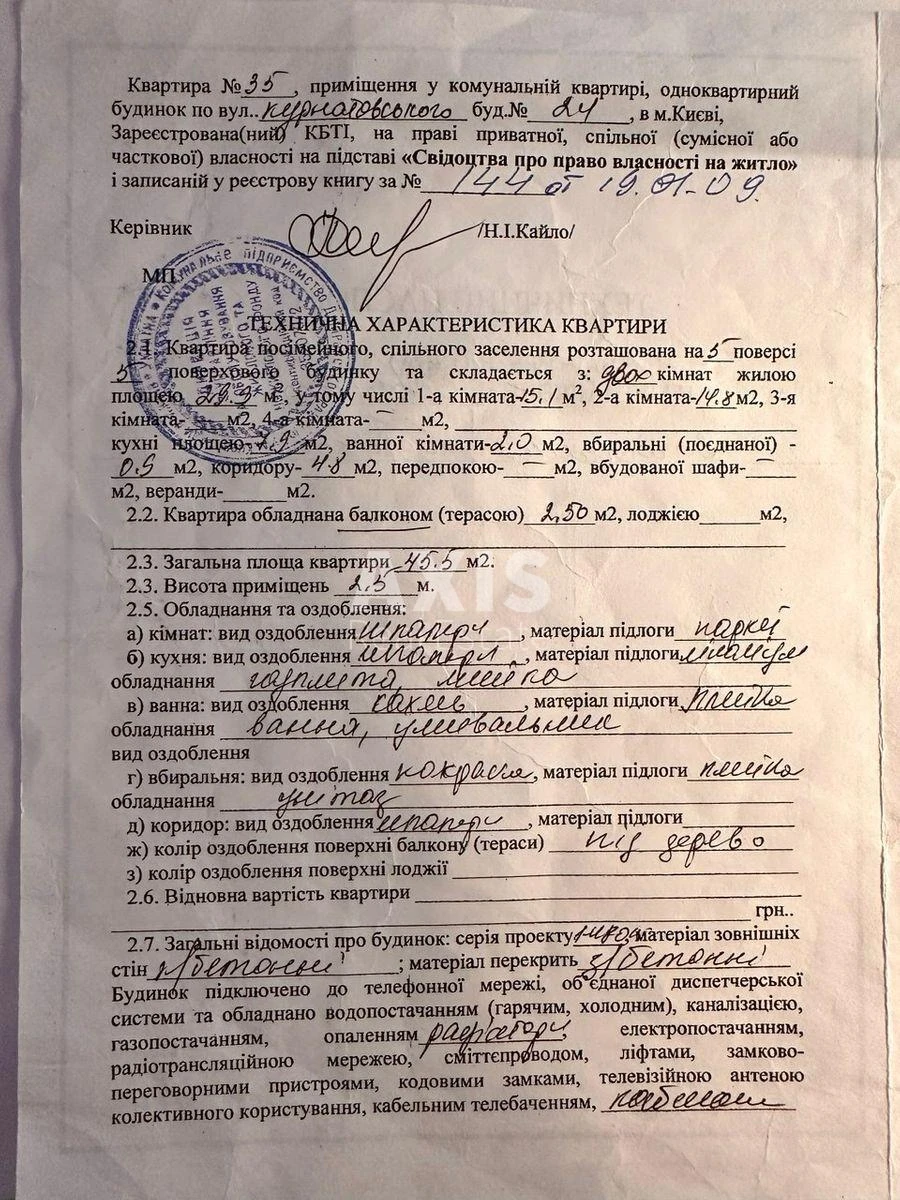 Квартира №35, приміщення у комунальній квартирі, одноквартирний
будинок по вул..Курнатовського буд.№ 24, в м.Києві,
Зареєстрована(ний) КБТІ, на праві приватної, спільної (сумісної або
часткової) власності на підставі «Свідоцтва про право власності на житло»
і записаній у реєстрову книгу за № 144 от 19.01-09.
Керівник /Н.І.Кайло/
МП
ТЕХНИЧНА ХАРАКТЕРИСТИКА КВАРТИРИ
2.1. Квартира посімейного, спільного заселення розташована на 5 поверсі
5 поверхового будинку та складається з: двох кімнат жилою
площею 29.9 м², у тому числі 1-а кімната-15.1 м², 2-а кімната-14.8м2, 3-я
кімната-___м2, 4-а кімната-___м2,
кухні площею-7.9 м2, ванної кімнати-2.0 м2, вбиральні (поєднаної) -
0.9 м2, коридору- 4.8 м2, передпокою- — м2, вбудованої шафи- —
м2, веранди-______м2.
2.2. Квартира обладнана балконом (терасою) 2,50 м2, лоджією______м2,
2.3. Загальна площа квартири 45.5 м2.
2.3. Висота приміщень 2.5 м.
2.5. Обладнання та оздоблення:
а) кімнат: вид оздоблення шпалери, матеріал підлоги паркет
б) кухня: вид оздоблення шпалери, матеріал підлоги лінолеум
обладнання газплита, мийка
в) ванна: вид оздоблення кахель, матеріал підлоги плитка
обладнання ванная, умивальник
вид оздоблення
г) вбиральня: вид оздоблення покраска, матеріал підлоги плитка
обладнання унітаз
д) коридор: вид оздоблення шпалери, матеріал підлоги
ж) колір оздоблення поверхні балкону (тераси) під дерево
з) колір оздоблення поверхні лоджії
2.6. Відновна вартість квартири
грн..
2.7. Загальні відомості про будинок: серія проекту матеріал зовнішніх
стін з/бетонні ; матеріал перекрить з/бетонні
Будинок підключено до телефонної мережі, об'єднаної диспетчерської
системи та обладнано водопостачанням (гарячим, холодним), каналізацією,
газопостачанням, опаленням радіатори, електропостачанням,
радіотрансляційною мережею, сміттєпроводом, ліфтами, замково-
переговорними пристроями, кодовими замками, телевізійною антеною
колективного користування, кабельним телебаченням,
AXIS